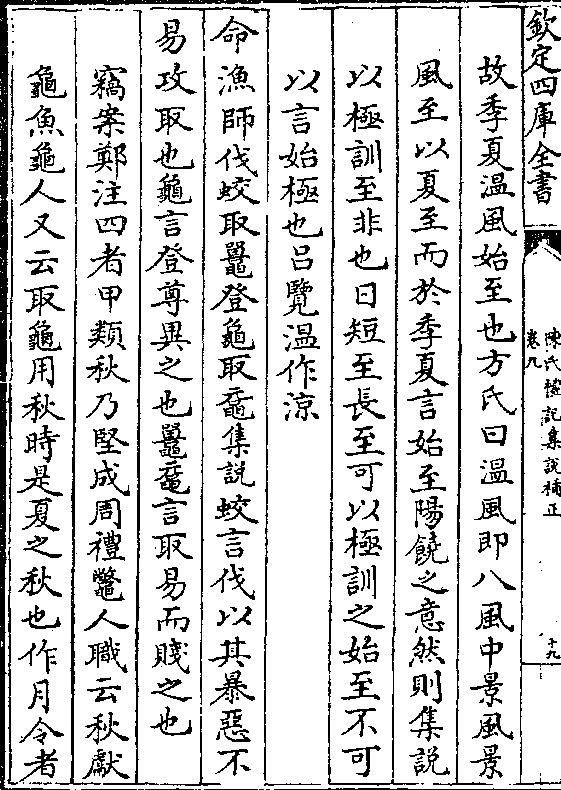 欽定四庫全書
陳氏禮記集說補正
卷九
十九
故季夏溫風始至也方氏曰溫風即八風中景風景
風至以夏至而於季夏言始至陽饒之意然則集說
以極訓至非也日短至長至可以極訓之始至不可
以言始極也呂覽溫作涼
命漁師伐蛟取鼉登龜取黿集說蛟言伐以其暴惡不
易攻取也龜言登尊異之也鼉黿言取易而賤之也
竊案鄭注四者甲類秋乃堅成周禮鼈人職云秋獻
龜魚龜人又云取龜用秋時是夏之秋也作月令者